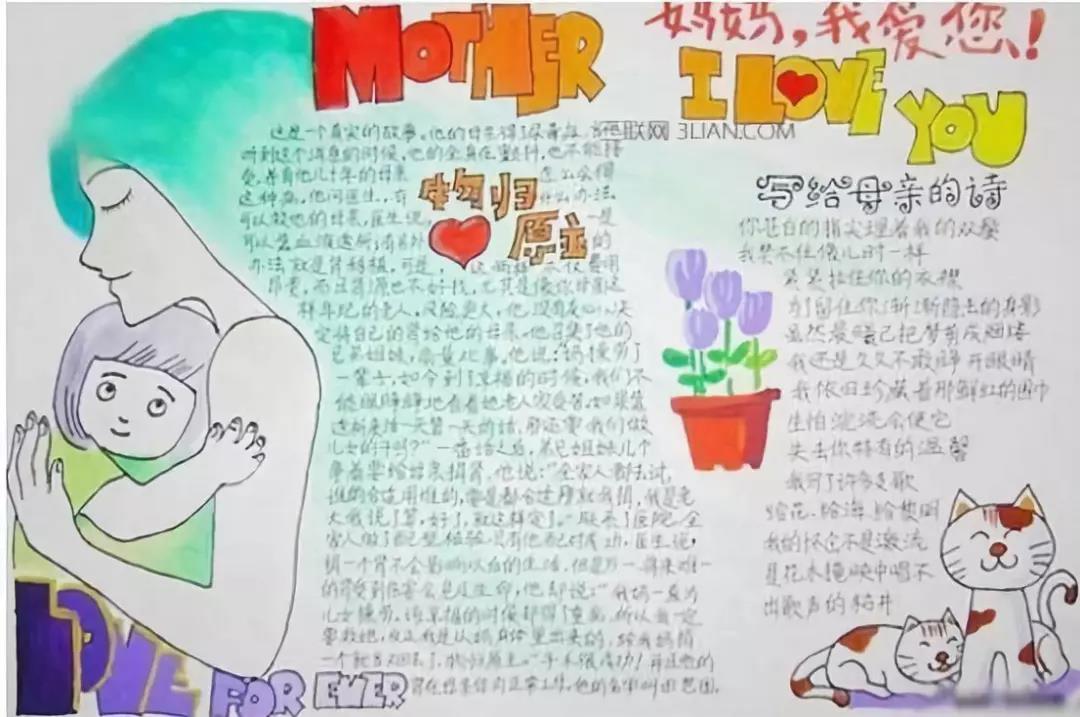 MOTHER
妈妈,我爱您!
I LOVE YOU
三联网 3LIAN.COM
物归
原主
这是一个真实的故事,他的母亲得了尿毒症,当他
听到这个消息的时候,他的全身在颤抖,他不能接
受,养育他几十年的母亲 怎么会得
这种病,他问医生,有 什么办法
可以救他的母亲,医生说, 一是
可以血液透析,有另外 的
办法就是肾移植,可是, 这两样 不仅费用
昂贵,而且肾源也不好找,尤其是像你母亲这
样年纪的老人,风险更大,他没有灰心,决
定将自己的肾给他的母亲,他召集了他的
兄弟姐妹,商量此事,他说:“妈操劳了
一辈子,如今到了享福的时候,我们不
能眼睁睁地看着她老人家受苦,如果靠
透析来活一天算一天的话,那还要我们做
儿女的干吗?”一番话之后,弟兄姐妹几个
争着要给母亲捐肾,他说:“全家人都去试,
谁的合适用谁的,要是都合适那就我捐,我是老
大我说了算,好了,就这样定了。”联系了医院,全
家人做了配型检验,只有他配对成功,医生说,
捐一个肾不会影响以后的生活,但是万一将来唯一
的肾受到伤害会危及生命,他却说:“我妈一直为
儿女操劳,该享福的时候却得了重病,所以我一定
要救她,反正我是从妈身体里出来的,给我妈捐
一个就当又回去了,物归原主。”手术很成功!并且他的
肾在母亲体内正常工作,他的名字叫田世国。
写给母亲的诗
你苍白的指尖理着我的双鬓
我禁不住像儿时一样
紧紧拉住你的衣襟
为了留住你渐渐隐去的身影
虽然晨曦已把梦剪成烟缕
我还是久久不敢睁开眼睛
我依旧珍藏着那鲜红的围巾
生怕浣洗会使它
失去你特有的温馨
我写了许多支歌
给花、给海、给黎明
我的怀念不是激流
是花木掩映中唱不
出歌声的枯井
LOVE
FOR EVER